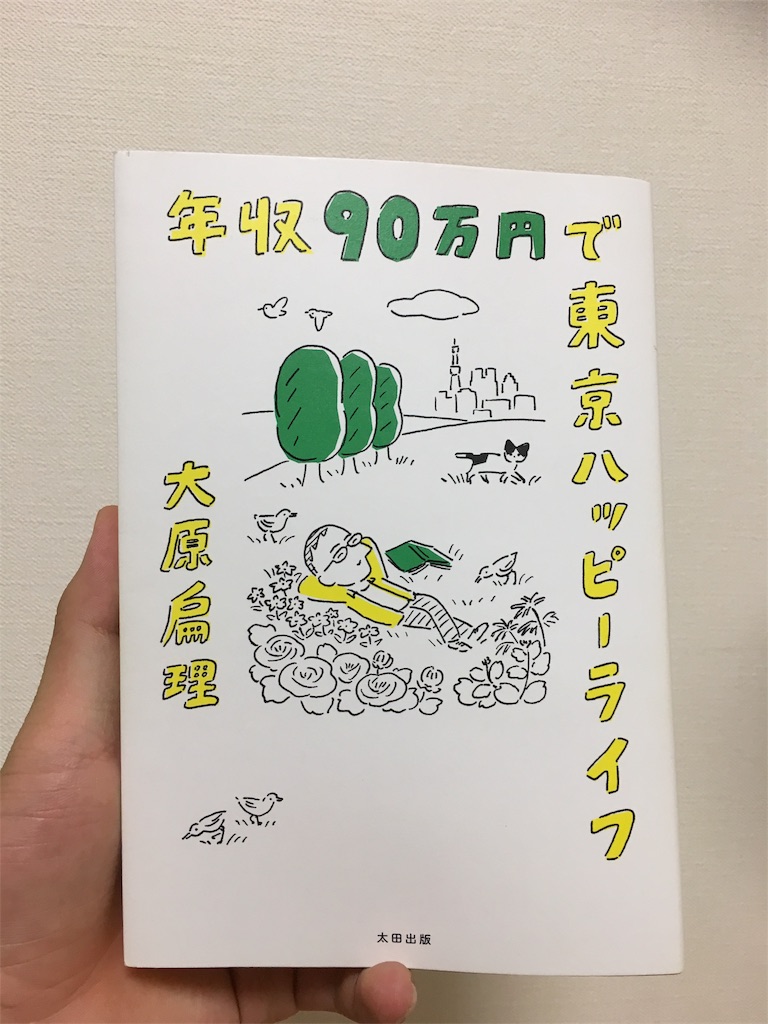 年収90万円で
東京ハッピーライフ
大原扁理
太田出版